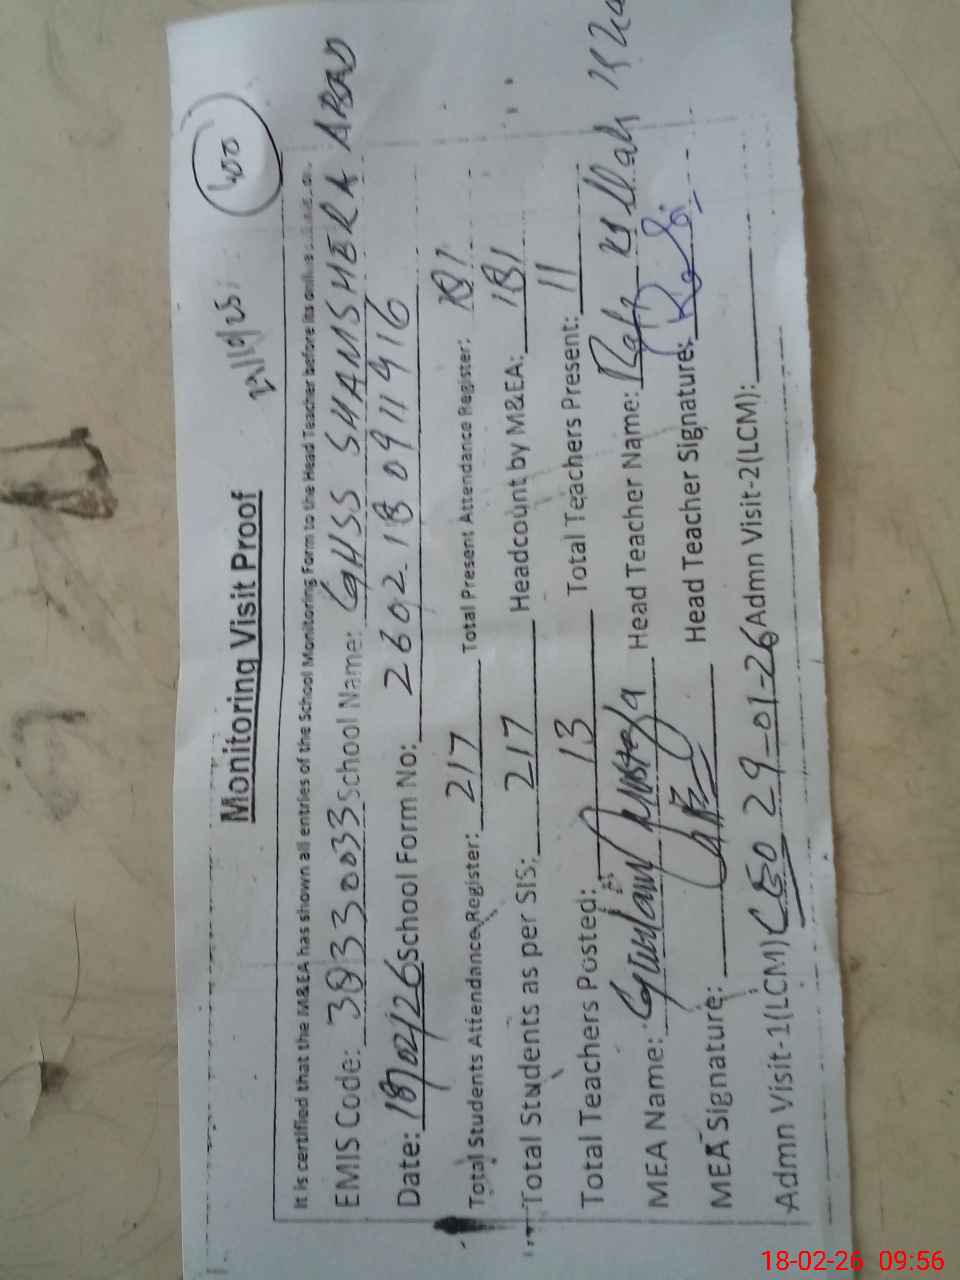 400
Monitoring Visit Proof
It is certified that the M&EA has shown all entries of the School Monitoring Form to the Head Teacher before its online
EMIS Code: 38330033 School Name: GHSS SHAMSHERA ABAD
Date: 18/02/26 School Form No: 2602180911416
Total Students Attendance Register: 217 Total Present Attendance Register: 181
Total Students as per SIS: 217 Headcount by M&EA: 181
Total Teachers Posted: 13 Total Teachers Present: 11
MEA Name: Ghulam Mustafa Head Teacher Name:
MEA Signature: Head Teacher Signature:
Admn Visit-1(LCM) CEO 29-01-26 Admn Visit-2(LCM):
18-02-26 09:56